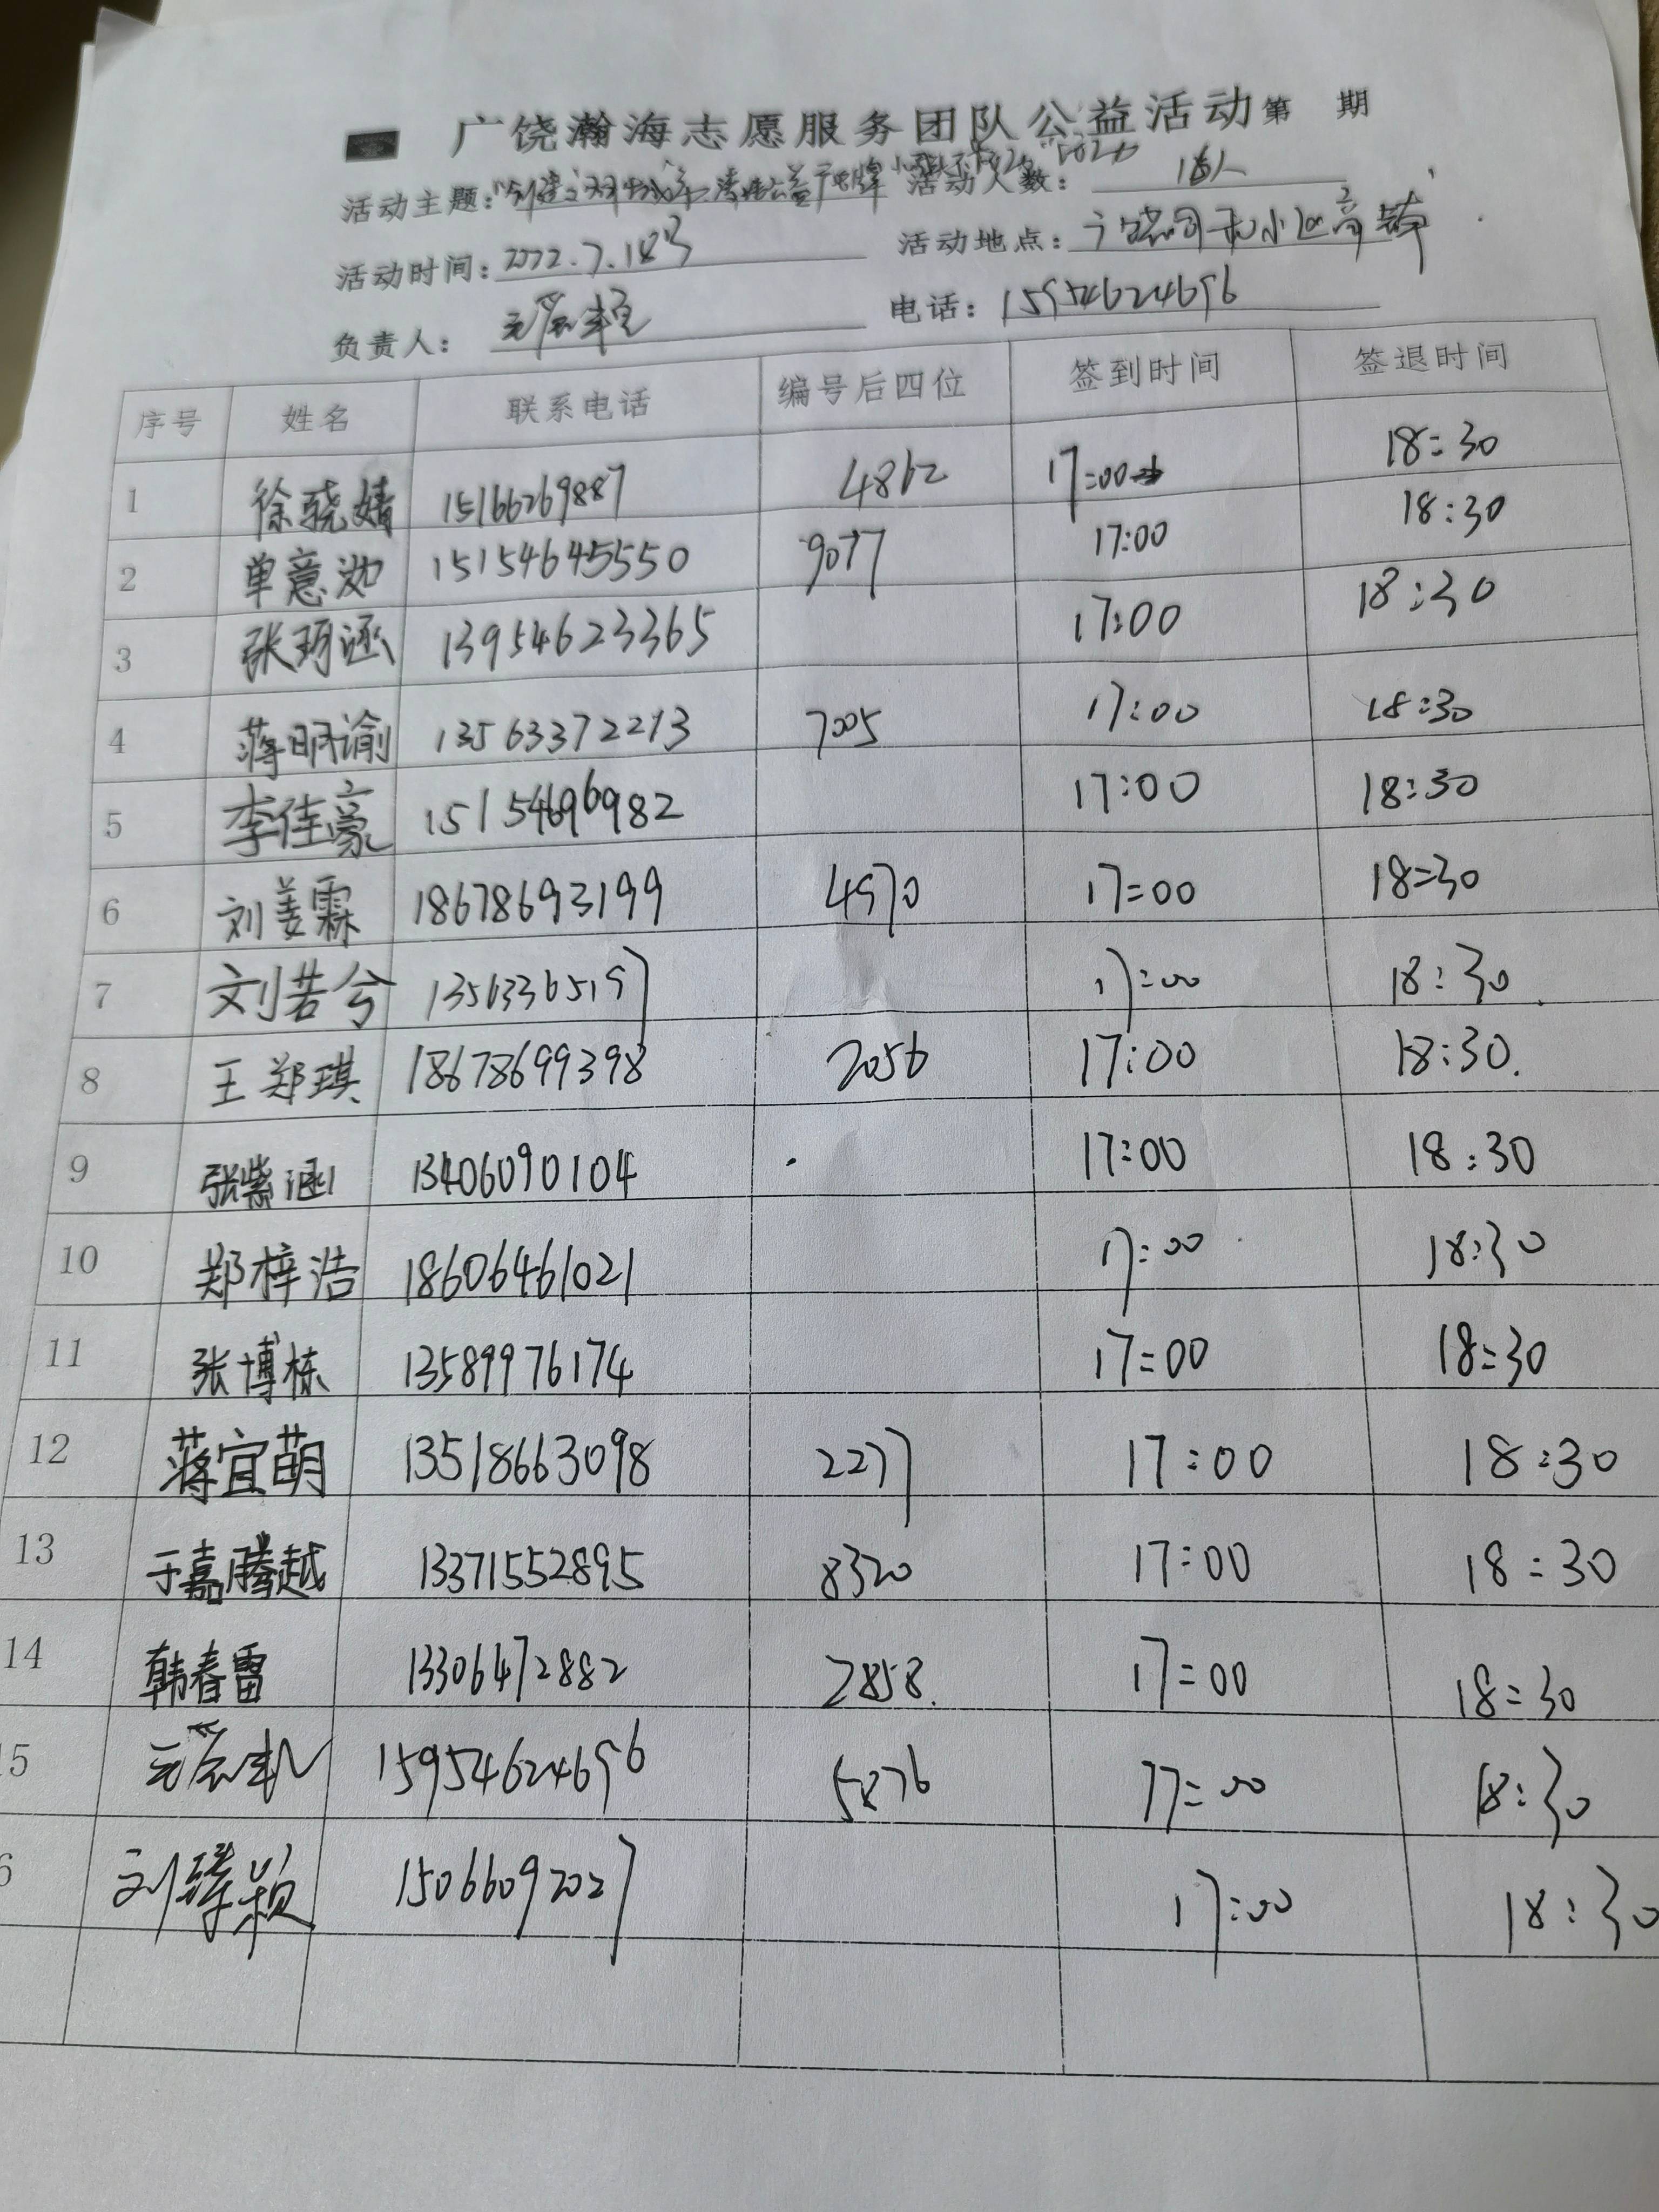 广饶瀚海志愿服务团队公益活动第 期
活动主题：“创建文明城 清理公益广告牌 活动人数： 16人
活动时间：2022.7.18号 活动地点：广饶同和小区
负责人： 电话：15954624696
序号 姓名 联系电话 编号后四位 签到时间 签退时间
1 徐骁婧 15166269887 4862 17:00 18:30
2 单意 15154645550 9077 17:00 18:30
3 张珂涵 13954623365 17:00 18:30
4 蒋明谕 13563372213 7005 17:00 18:30
5 李佳豪 15154696982 17:00 18:30
6 刘姜霖 18678693199 4970 17:00 18:30
7 刘若兮 13563365197 17:00 18:30
8 王郑琪 18678699398 2056 17:00 18:30.
9 张紫涵 13406090104 17:00 18:30
10 郑梓浩 18606461021 17:00 18:30
11 张博栋 13589976174 17:00 18:30
12 蒋宜萌 13518663098 2277 17:00 18:30
13 于嘉腾越 13371552895 8320 17:00 18:30
14 韩春雷 13306472882 2858. 17:00 18:30
5 15954624696 5876 17:00 18:30
6 刘臻颖 15066092027 17:00 18:30